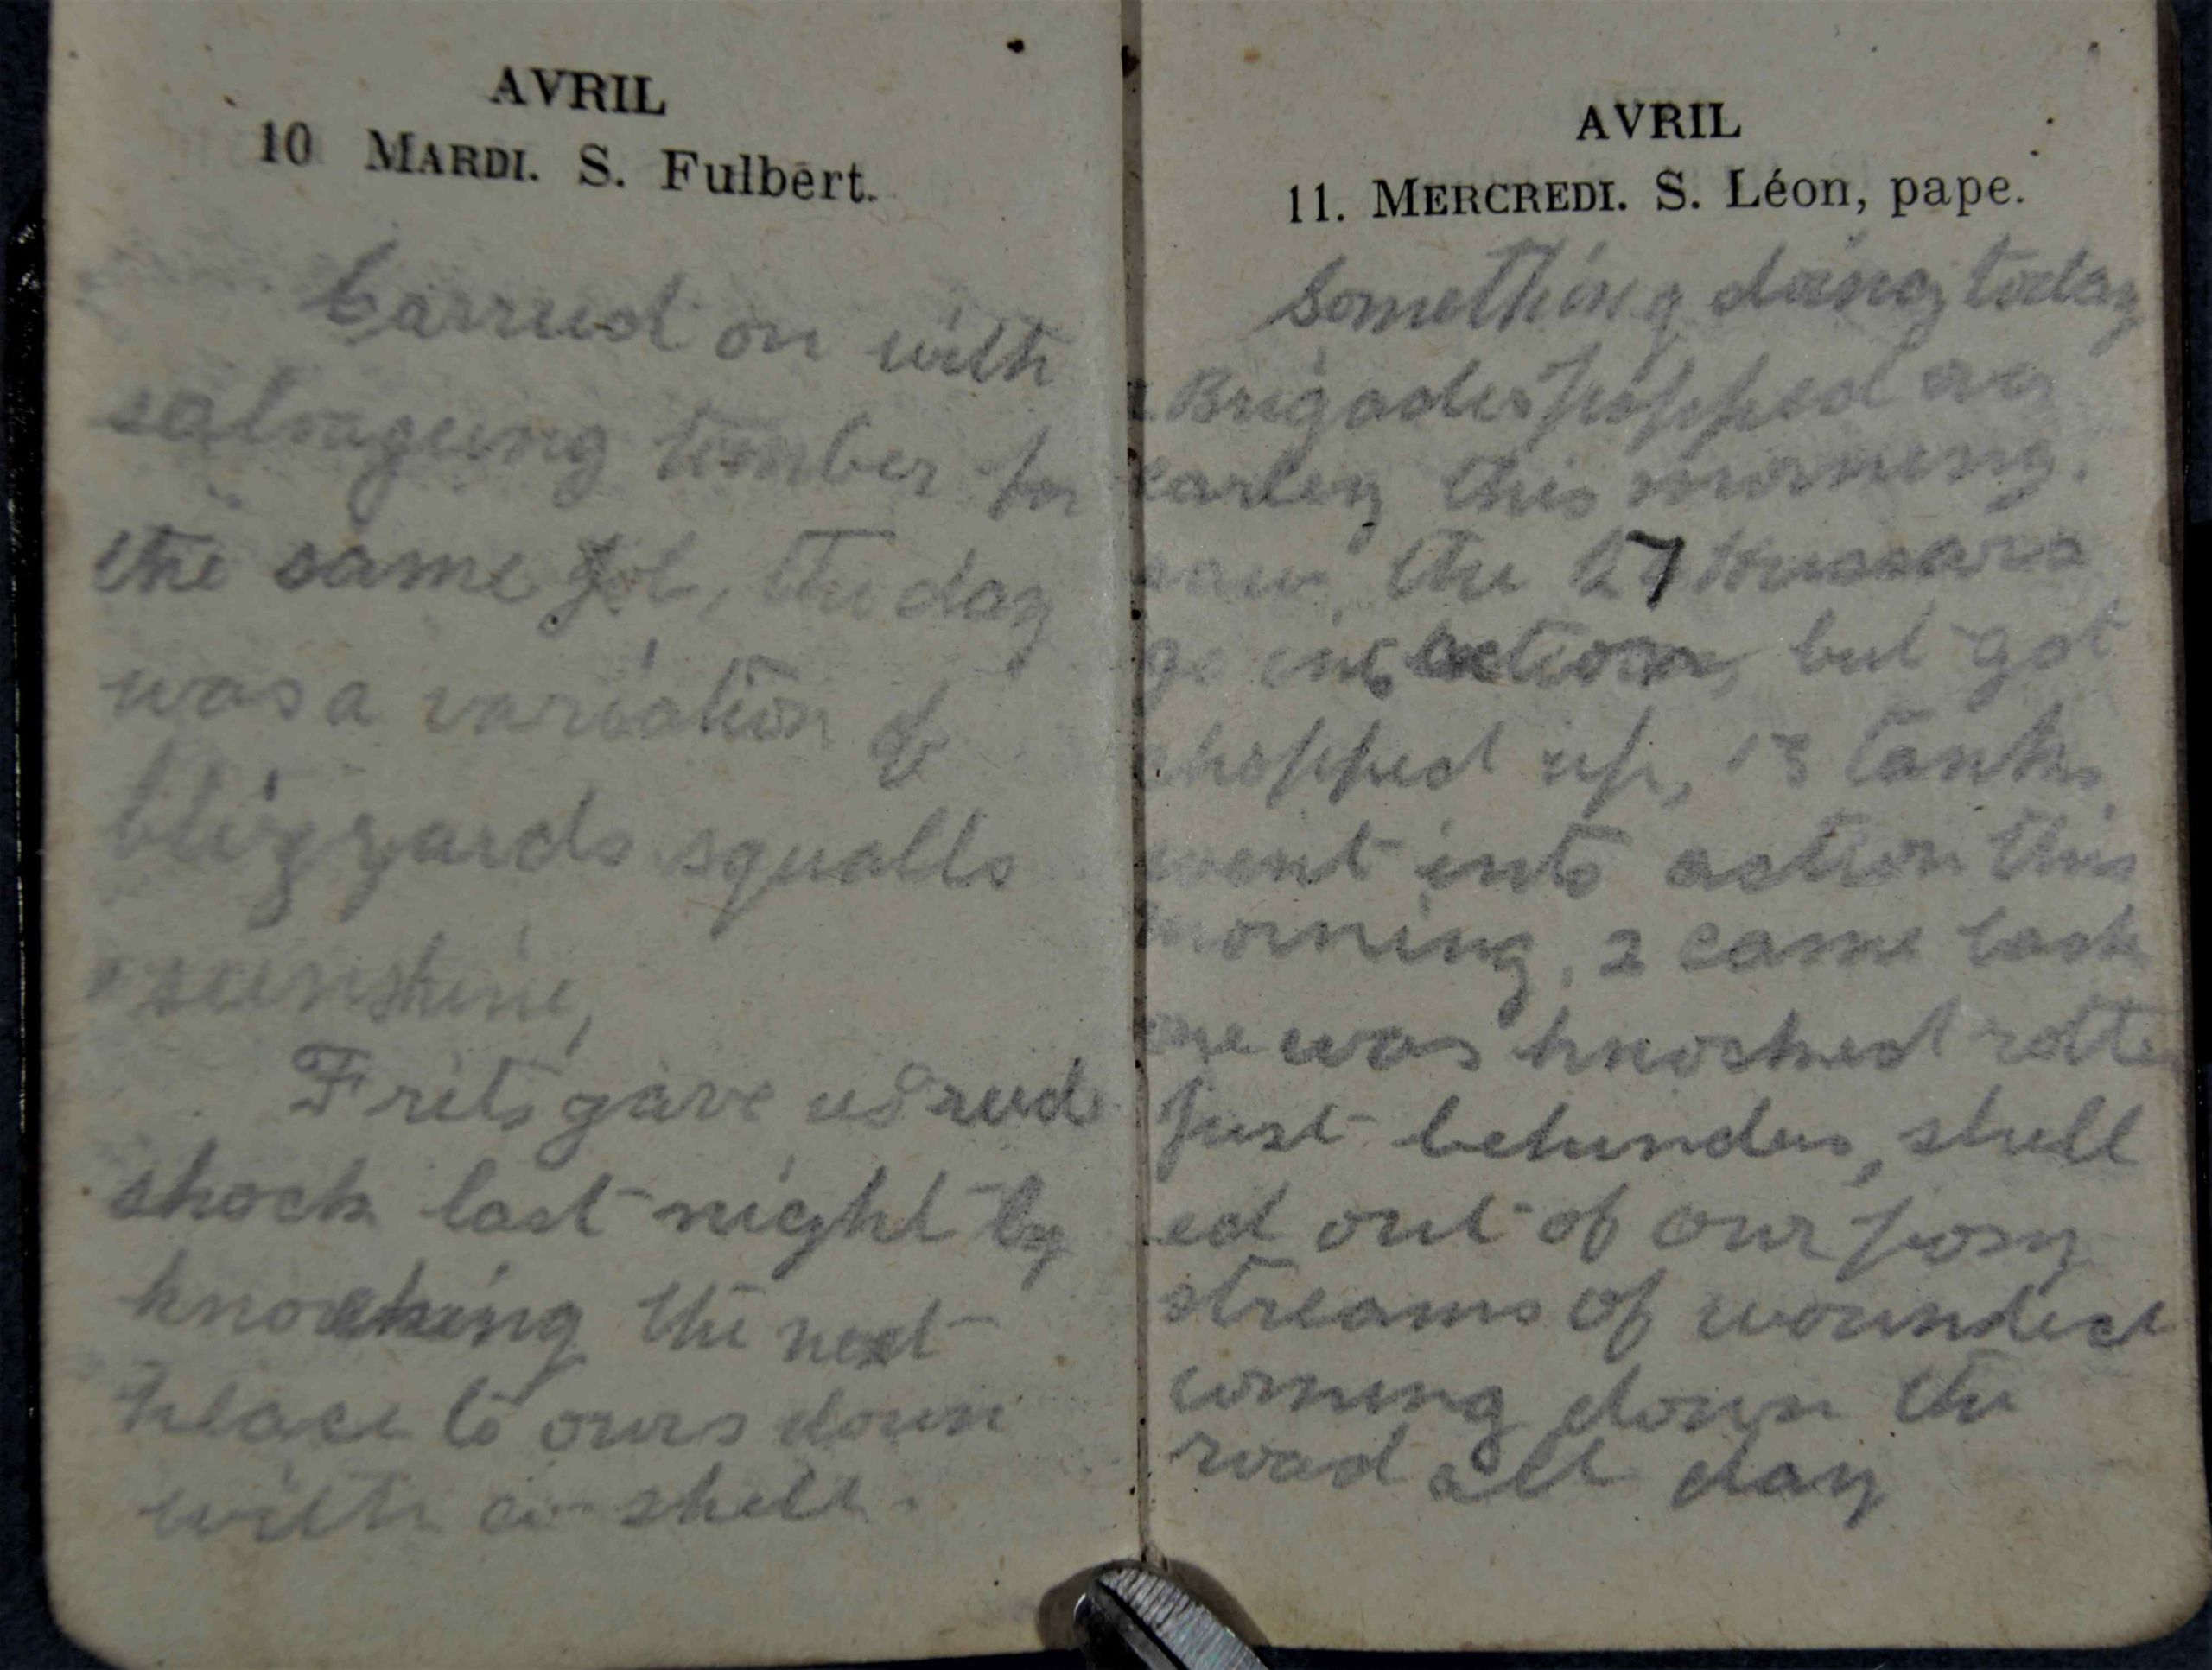 AVRIL
10 MARDI. S. Fulbert.
Carried on with
salvageing timber for
the same job, the day
was a variation of
blizzards squalls
& sunshine,
Frits gave us rude
shock last night by
knocking the next
place to ours down
with a shell.
AVRIL
11. MERCREDI. S. Léon, pape.
Something doing today
2 Brigades popped over
early this morning.
saw, the 27 Hussars
go into action, but got
chopped up, 13 tanks,
went into action this
morning, 2 came back
one was knocked rotten
just behinders, shell
ed out of our posy
streams of wounded
coming down the
road all day